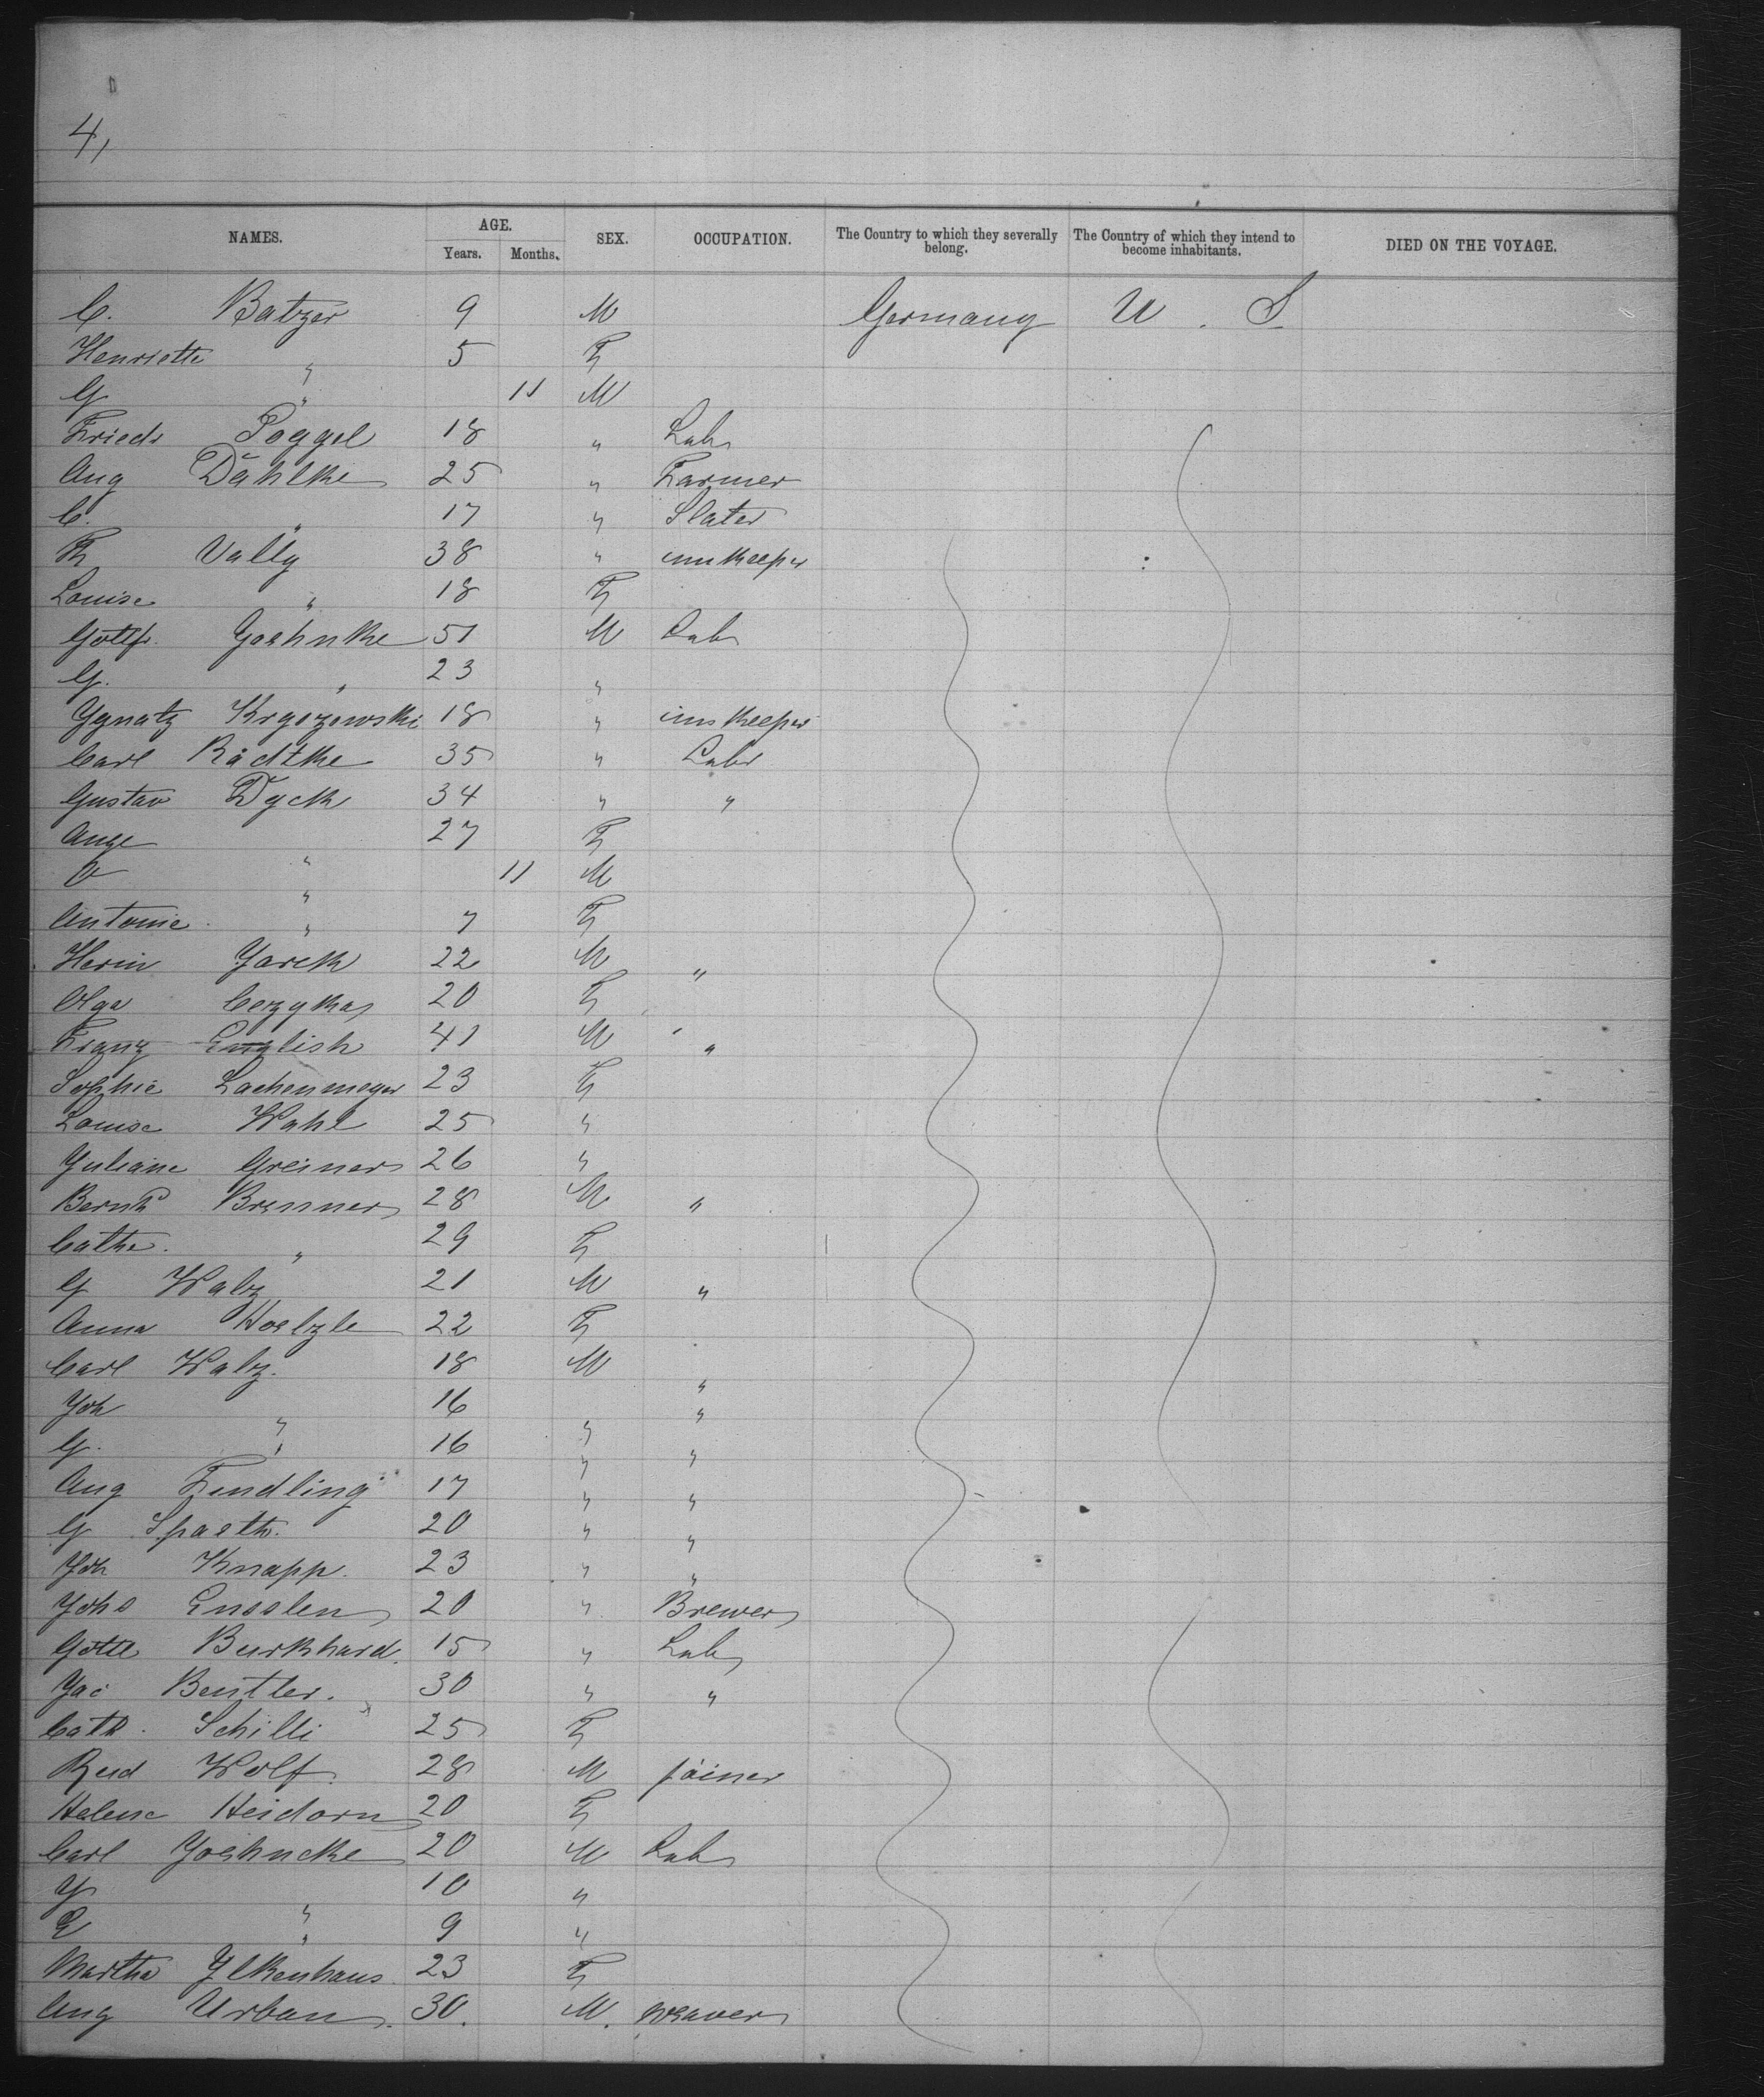 4,
NAMES. AGE. SEX. OCCUPATION. The Country to which they severally belong. The Country of which they intend to become inhabitants. DIED ON THE VOYAGE.
Years. Months.
C. Batzer 9 M Germany U. S.
Henriette " 5 F
G " 11 M
Friedr Poggel 18 " Labr
Aug Dahlke 25 " Farmer
C. " 17 " Slater
F Vally 38 " innkeeper
Louise " 18 F
Gottfr. Goehnke 51 M Labr
G. " 23 "
Ygnatz Krgozowski 18 " innkeeper
Carl Radtke 35 " Labr
Gustav Dyck 34 " "
Auge " 27 F
O " 11 M
Antonie " 7 F
Herm Yarck 22 M "
Olga Cezykas 20 F
Franz English 41 M "
Sophie Lachenmeyer 23 F
Louise Wahl 25 "
Yuliane Greiner 26 "
Bernhd Brenner 28 M "
Cathe. " 29 F
G Walz 21 M "
Anna Hoelzle 22 F
Carl Walz. 18 M "
Yoh " 16 " "
G. " 16 " "
Aug Findling 17 " "
G Spaeth. 20 " "
Yoh Knapp. 23 " "
Yohs Ensslen 20 " Brewer
Gottl Burkhard. 15 " Labr
Yac Beutler. 30 " "
Cath. Schilli 25 F
Rud Wolf. 28 M joiner
Helene Heidorn 20 F
Carl Yoehncke 20 M Labr
Y " 10 "
E " 9 "
Martha Ylkenhans 23 F
Aug Urban. 30. M. weaver